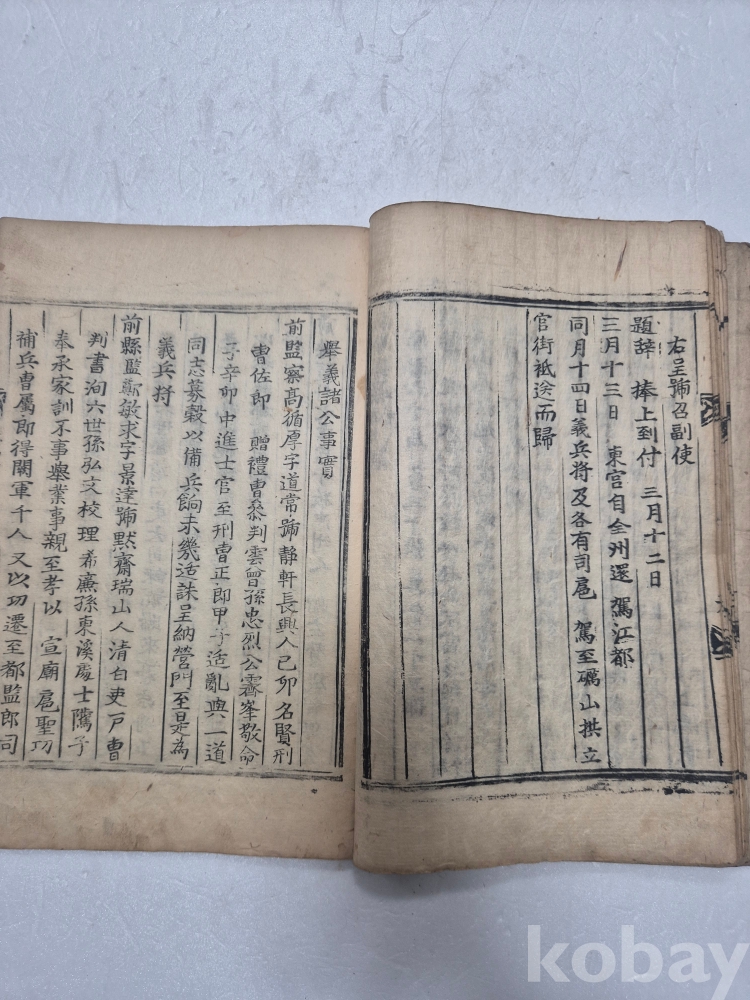 右呈號召副使
題辭 捧上到付 三月十二日
三月十三日 東宮自全州還 駕江都
同月十四日義兵將及各有司扈 駕至礪山拱立
官街祗送而歸
擧義諸公事實
前監察高循厚字道常號靜軒長興人己卯名賢刑
曹佐郎 贈禮曹叅判雲曾孫忠烈公霽峯敬命
子辛卯中進士官至刑曹正郎甲子适亂與一道
同志募穀以備兵餉未幾适誅呈納營門至是爲
義兵將
前縣監鄭敏求字景達號默齋瑞山人淸白吏戶曹
判書洵六世孫弘文校理希廉孫東溪處士隲子
奉承家訓不事擧業事親至孝以 宣廟扈聖功
補兵曹屬郎得關軍千人又以功遷至都監郎司
kobay